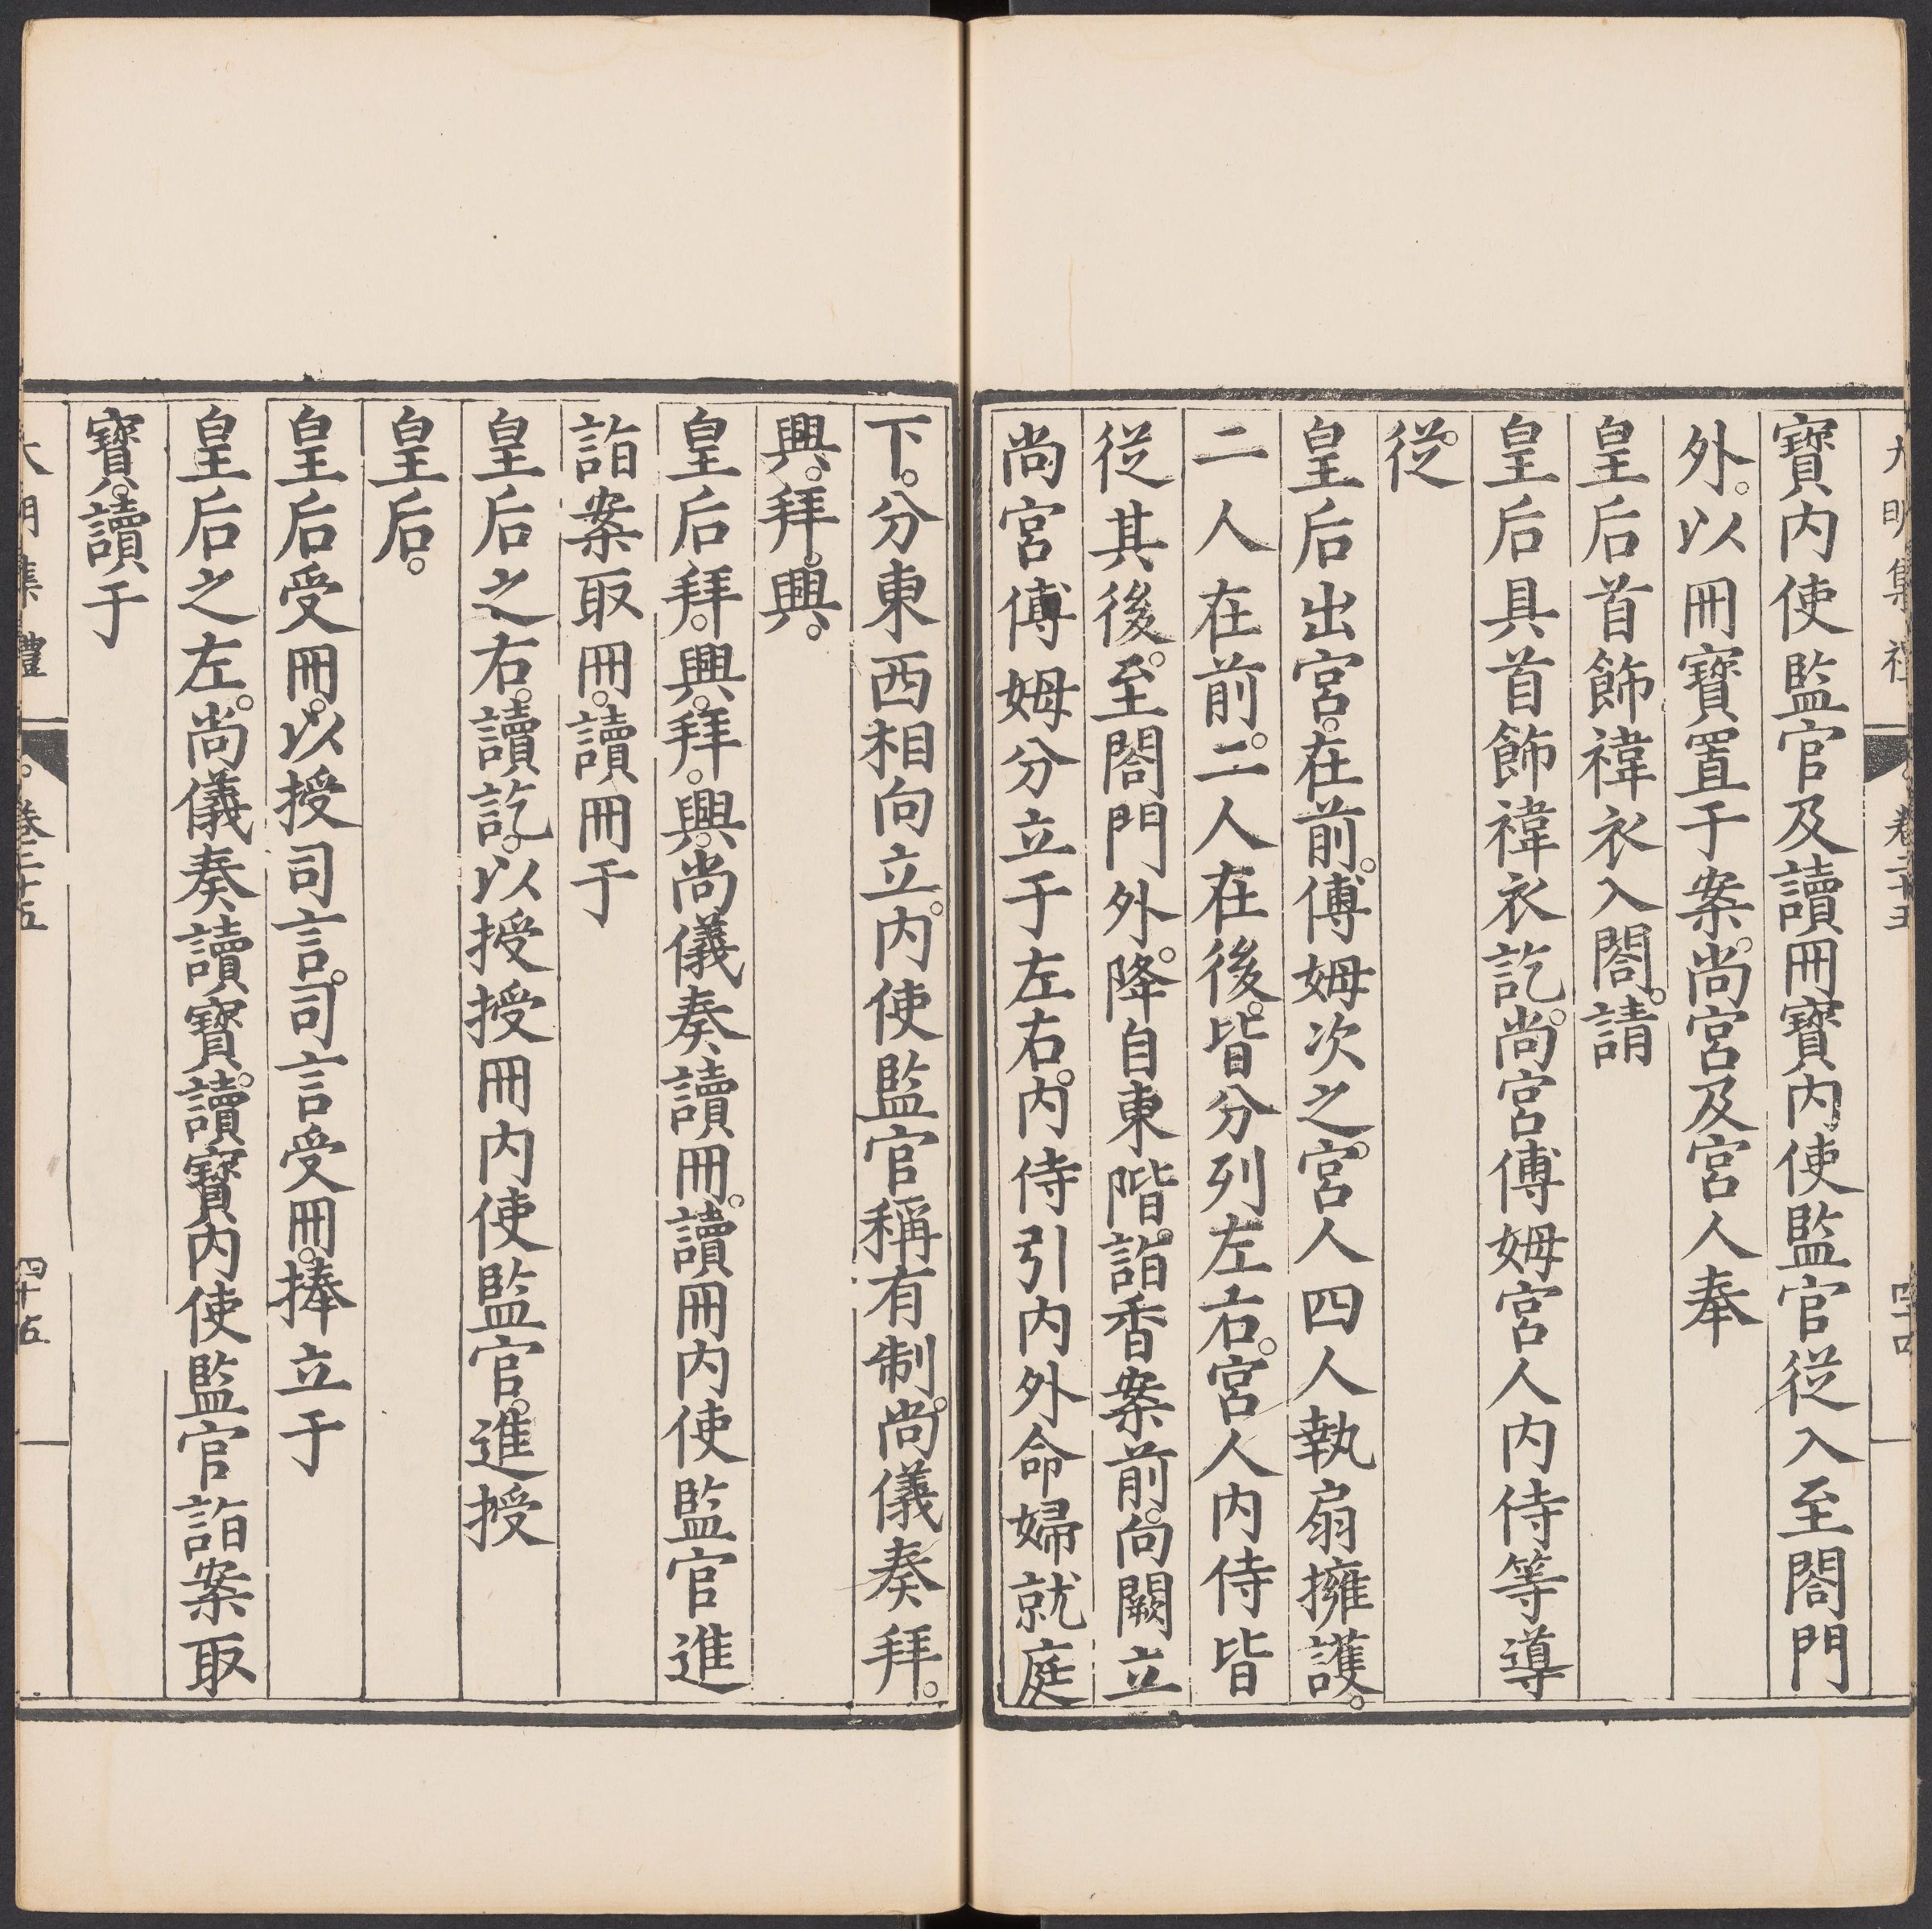 大明集禮 卷二十五 四十四
寶内使監官及讀冊寶内使監官從入至閤門
外。以冊寶置于案。尚宮及宮人奉
皇后首飾褘衣入閤。請
皇后具首飾褘衣訖。尚宮傅姆宮人内侍等導
從。
皇后出宮。在前。傅姆次之。宮人四人執扇擁護。
二人在前。二人在後。皆分列左右。宮人内侍皆
從其後。至閤門外。降自東階。詣香案前。向闕立
尚宮傅姆分立于左右。内侍引内外命婦就庭
下。分東西相向立。内使監官稱有制。尚儀奏拜。
興。拜。興。
皇后拜。興。拜。興。尚儀奏讀冊。讀冊内使監官進
詣案取冊。讀冊于
皇后之右。讀訖。以授授冊内使監官。進授
皇后。
皇后受冊。以授司言。司言受冊。捧立于
皇后之左。尚儀奏讀寶。讀寶内使監官詣案取
寶。讀于
大明集禮 卷二十五 四十五